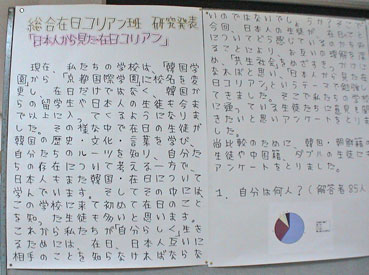 総合在日コリアン班 研究発表
「日本人から見た在日コリアン」
現在、私たちの学校は、「韓国学
園」から「京都国際学園」に校名を変
更し、在日だけではなく、韓国か
らの留学生や日本人の生徒も今ま
で以上に入ってくるようになりま
した。その様な中で在日の生徒が
韓国の歴史・文化・言葉を学び、
自分たちのルーツを知り、自分た
ちの存在について考える一方で、
日本人もまた韓国・在日について
学んでいます。そしてその中には、
この学校に来て初めて在日のこと
を知った生徒も多いと思います。
これから私たちが「自分らしく」生き
るためには、在日、日本人互いに
相手のことを知らなければならな
いのではないでしょうか？そこで
今回、日本人の生徒が、在日に
ついてどう感じているのかを知
ることにより、お互いの理解を深
め、"共生社会"をめざす
なればと思い、「日本人から見た在
日コリアン」というテーマで勉強し
てきました。そこで私たちの学校
に通っている生徒たちに意見を聞
きたいと思いアンケートをとりま
した。
当比較のために、韓国・朝鮮籍の
生徒や中国籍、ダブルの生徒にも
アンケートをとりました。
1. 自分は何人？（解答者85人